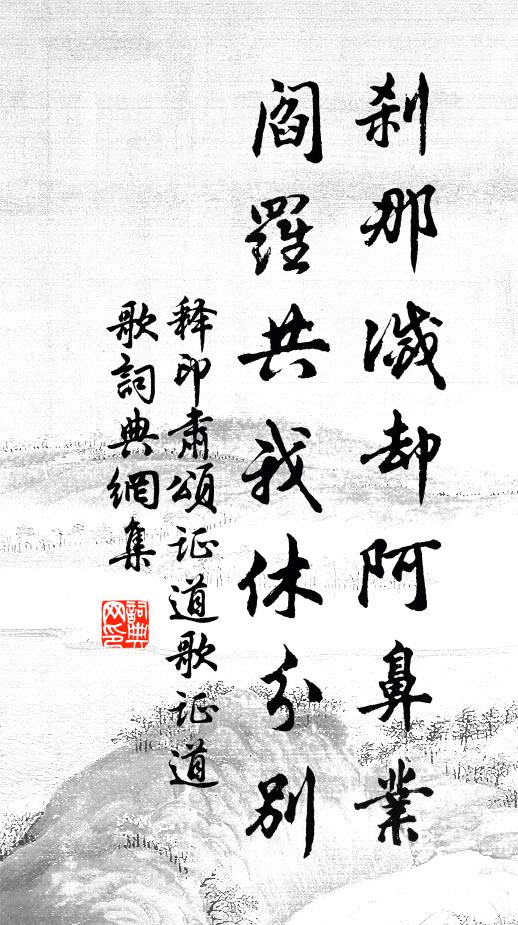 刹那滅却阿鼻業
閻羅共我休分别
释印肃頌证道歌证道
歌詞典網集
詞典
网印